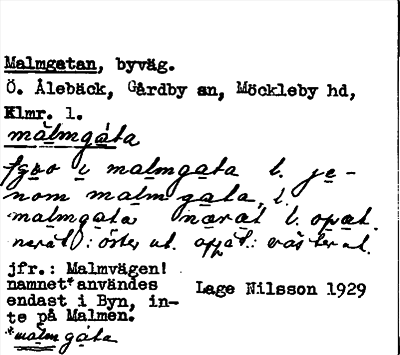 Malmgatan, byväg.
Ö. Ålebäck, Gårdby sn, Möckleby hd,
Klmr. l.
malmgáta
i malmgata l. je-
nom malm gata, l.
malmgata næræt l. opæt.
neråt: öster ut. oppåt: väster ut.
jfr.: Malmvägen!
namnet* användes
endast i Byn, in-
te på Malmen.
Lage Nilsson 1929
*malm gáta